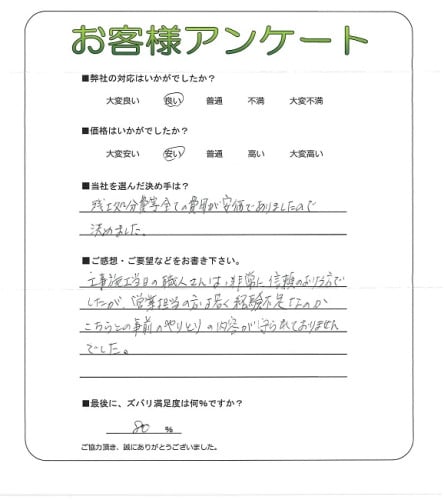 お客様アンケート
■弊社の対応はいかがでしたか？
大変良い 良い 普通 不満 大変不満
■価格はいかがでしたか？
大変安い 安い 普通 高い 大変高い
■当社を選んだ決め手は？
残土処分費等全ての費用が安価でありましたので
決めました。
■ご感想・ご要望などをお書き下さい。
工事施工当日の職人さんは、非常に信頼のおける方で
したが、営業担当の方は若く経験不足なのか
こちらとの事前のやりとりの内容が守られておりません
でした。
■最後に、ズバリ満足度は何％ですか？
80 ％
ご協力頂き、誠にありがとうございました。